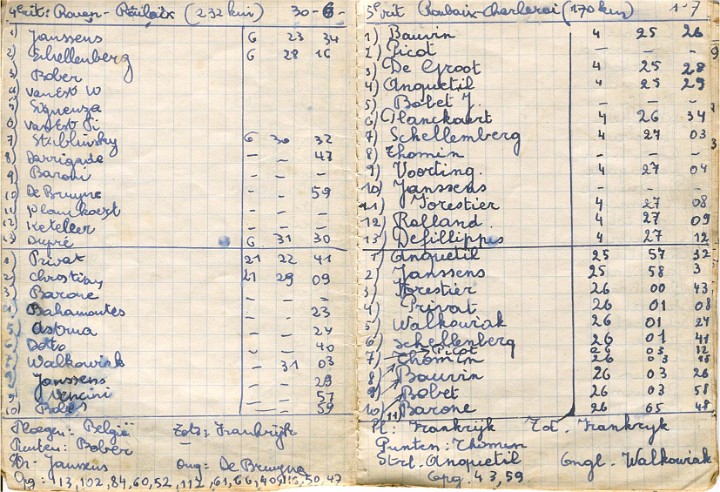 4e rit: Rouen - Roubaix (232 km) 30-6-
1) Janssens 6 23 34
2) Schellenberg 6 28 16
3) Bober
4) vanEst W
5) Siguenza
6) vanEst Pi
7) Stablinsky 6 30 32
8) Darrigade — — 47
9) Baroni — — —
10) De Bruyne — — 59
11) Planckaert — — —
12) Keteller — — —
13) Dupré 6 31 30
1) Privat 21 22 41
2) Christian 21 29 09
3) Barone — — —
4) Bahamontes — — 23
5) Astrua — — 24
6) Dotto — — 40
7) Walkowiak — 31 03
8) Janssens — — 29
9) Vencini — — 57
10) Bober — — 59
Ploegen: België Tots: Frankrijk
Punten: Bober
Str: Janssens Ong: De Bruyne
Opg: 113, 102, 84, 60, 52, 112, 61, 66, 40, 50, 47
5e rit Roubaix-Charleroi (170 km) 1-7
1) Bauvin 4 25 26
2) Picot — — —
3) De Groot 4 25 28
4) Anquetil 4 25 29
5) Bobet J. — — —
6) Planckaert 4 26 34
7) Schellemberg 4 27 03
8) Thomin — — —
9) Voorting 4 27 04
10) Janssens — — —
11) Forestier 4 27 08
12) Rolland 4 27 09
13) Defillippis 4 27 12
1) Anquetil 25 57 32
2) Janssens 25 58 3
3) Forestier 26 00 43
4) Privat 26 01 08
5) Walkowiak 26 01 24
6) Schellenberg 26 01 41
Picot 26 03 12
7) Thomin 26 03 18
8) Bauvin 26 03 26
9) Bobet 26 03 58
10) 11) Barone 26 65 48
Pl: Frankrijk Tot. Frankryk
Punten: Thomin
Strl. Anquetil Ongl. Walkowiak
Opg. 43, 59